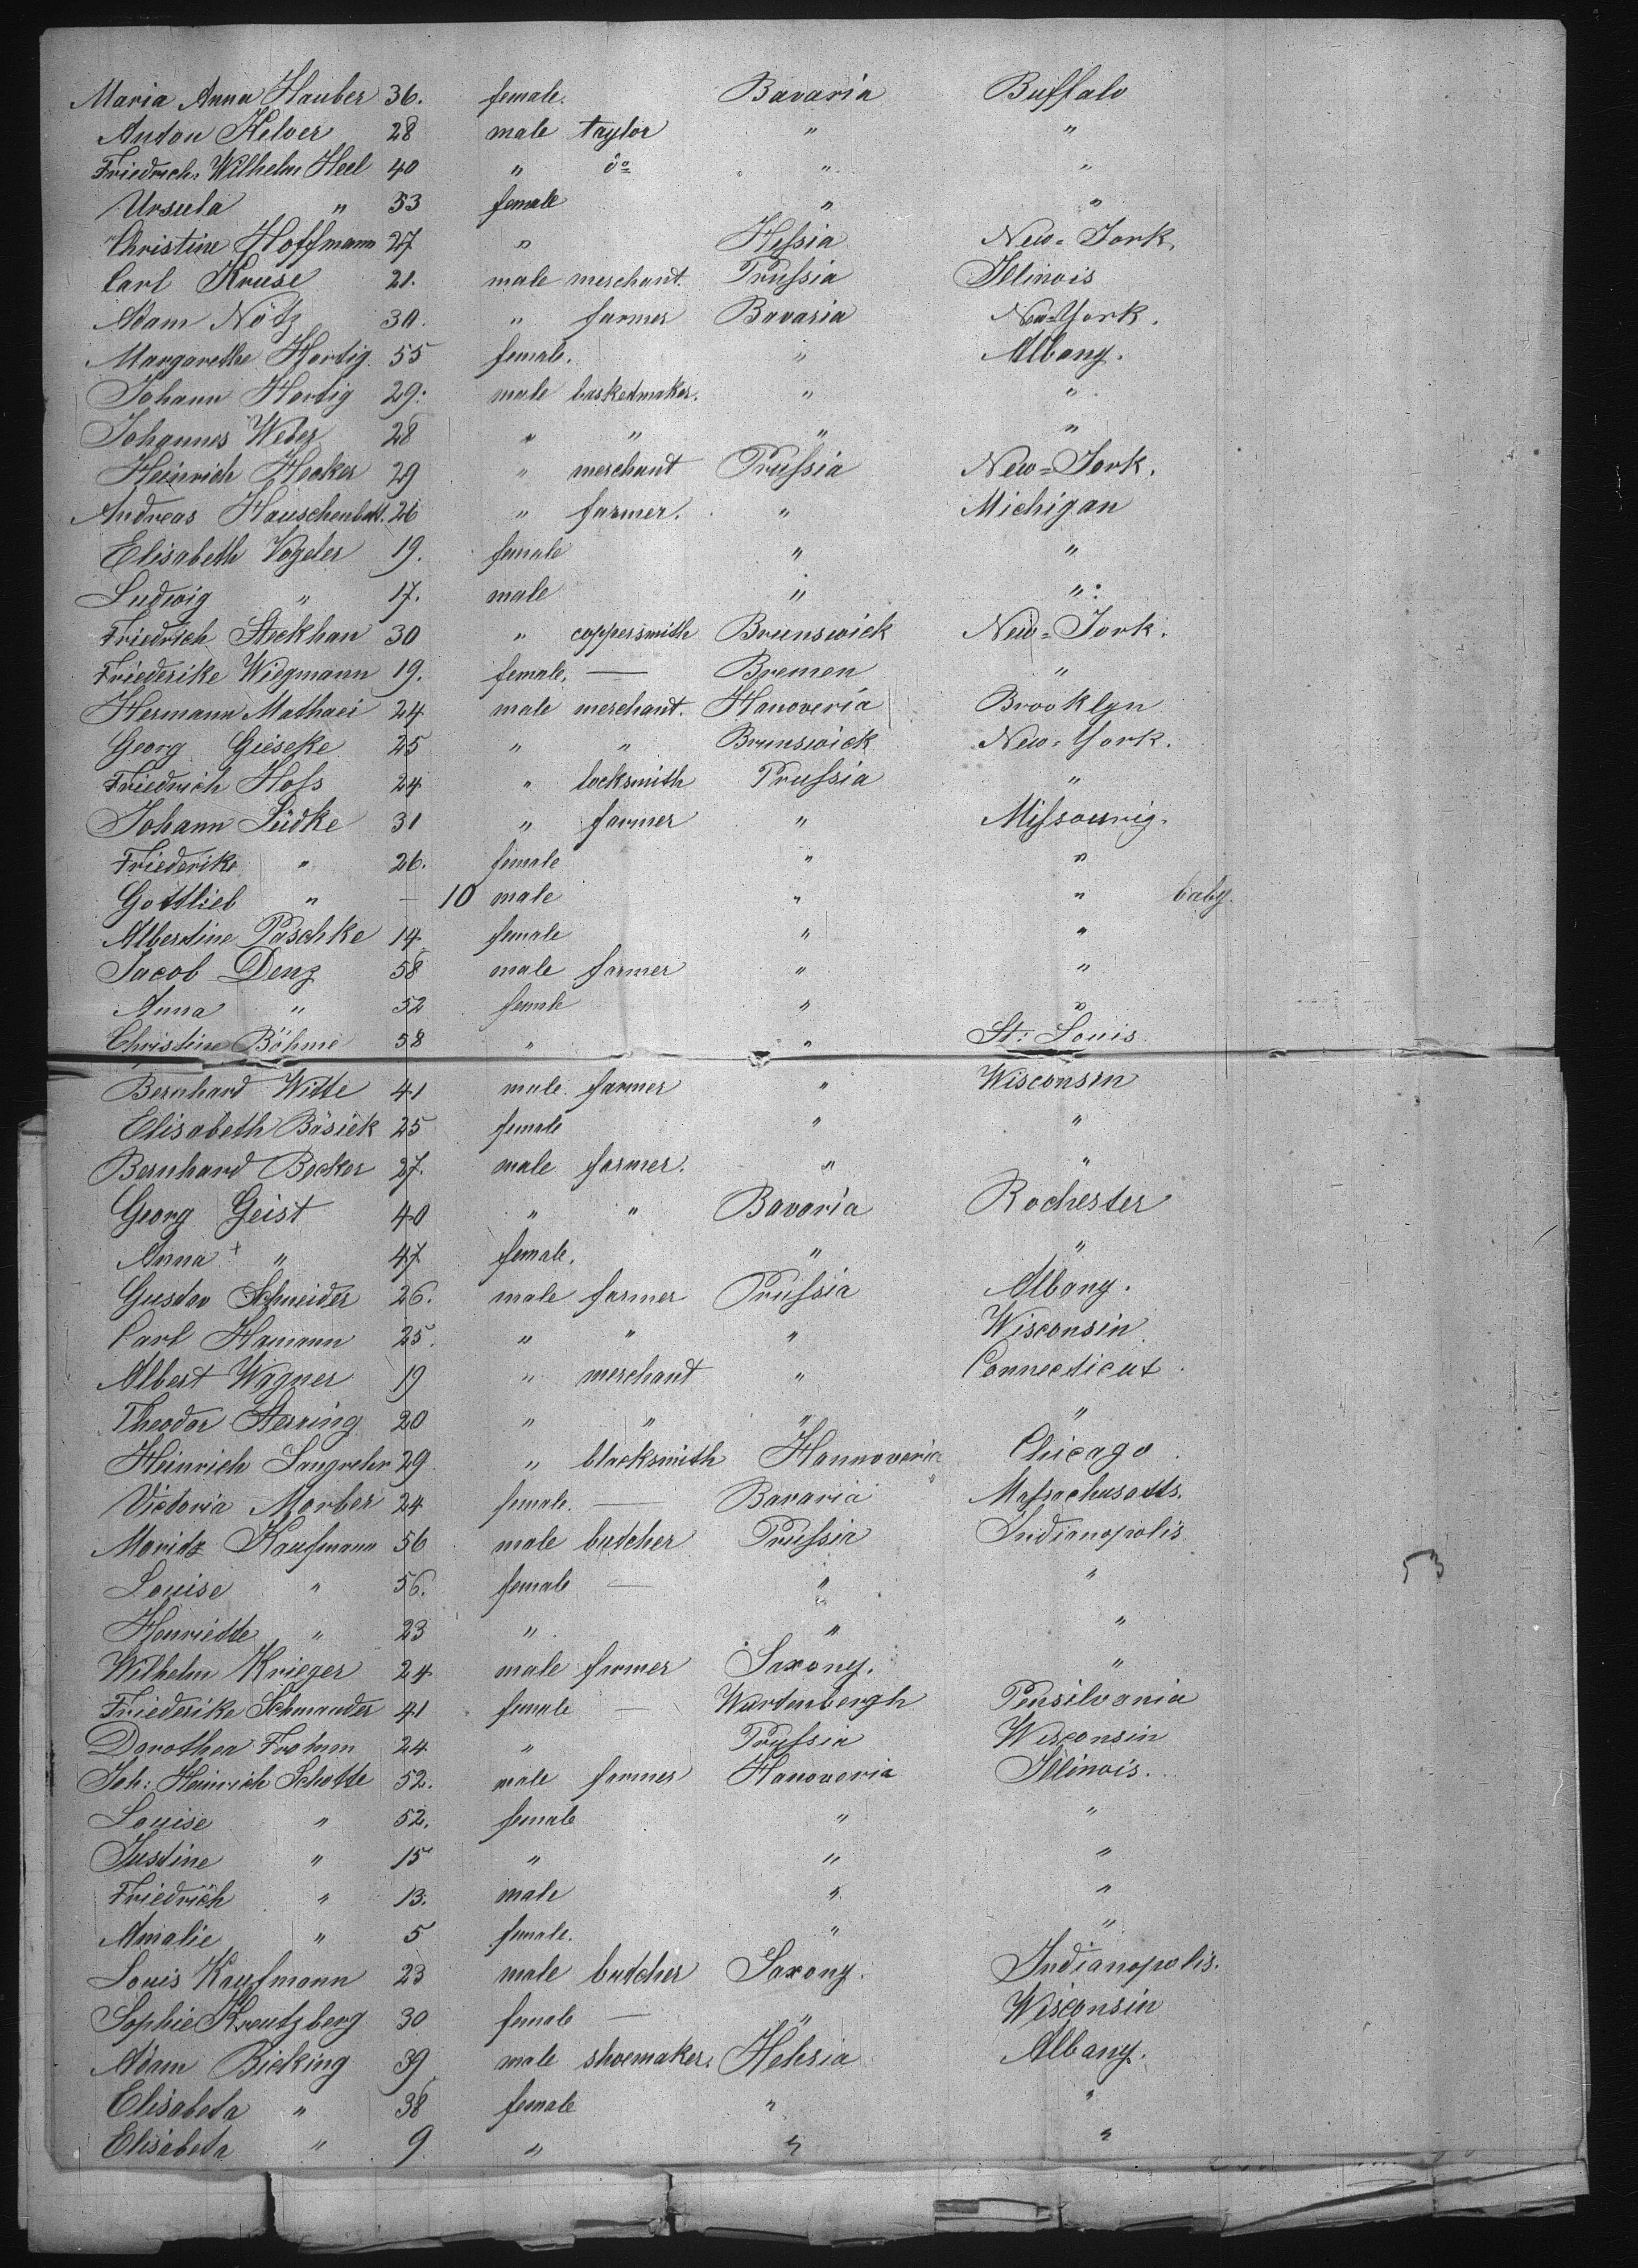 Maria Anna Hauber 36. female. Bavaria Buffalo
Anton Kelver 28 male taylor " "
Friedrich Wilhelm Heel 40 " do " "
Ursula " 53 female " "
Christine Hoffmann 27 " Heſsia New-York.
Carl Kruse 21. male merchant. Pruſsia Illinois
Adam Nötz 30. " farmer Bavaria New-York.
Margarethe Hortig. 55 female. " Albany.
Johann Hortig 29. male basketmaker. " "
Johannes Weber 28 " " " "
Heinrich Hecker 29 " merchant Pruſsia New-York.
Andreas 26 " farmer. " Michigan
Elisabeth Vogeler 19. female " "
Ludwig " 17. male " "
Friedrich Steckhan 30 " coppersmith Brunswick New-York.
Friederike Wiegmann 19. female. — Bremen "
Hermann Mathaei 24 male merchant. Hanoveria Brooklyn
Georg Gieseke 25 " " Brunswick New-York.
Friedrich Hoſs 24 " locksmith Pruſsia "
Johann Lüdke 31 " farmer " Miſsourig.
Friederike " 26. female " "
Gottlieb " — 10 male " " baby.
Albertine Päschke 14 female " "
Jacob Denz 58 male farmer " "
Anna " 52 female " "
Christine Böhme 58 " " St. Louis
Bernhard Witte 41 male farmer " Wisconsin
Elisabeth Bäsick 25 female " "
Bernhard Becker 27. male farmer. " "
Georg Geist 40 " " Bavaria Rochester
Anna + " 47. female. " "
Gustav Schneider 26. male farmer Pruſsia Albany.
Carl Hamann 25. " " " Wisconsin
Albert Wagner 19 " merchant " Connecticut
Theodor Sterring 20 " " " "
Heinrich Langrehr 29 " blacksmith Hannoveria Chicago
Victoria Morber 24 female. — Bavaria Maſsachusatts.
Moritz Kaufmann 56 male butcher Pruſsia Indianopolis
Louise " 56. female — " "
Henriette " 23 " " "
Wilhelm Krieger 24 male farmer Saxony. "
Friederike Schmauder 41 female — Wurtembergh Pensilvania
Dorothea Froman 24 " Pruſsia Wisconsin
Joh: Heinrich Schotte 52. male farmer Hanoveria Illinois.
Louise " 52. female " "
Justine " 15 " " "
Friedrich " 13. male " "
Amalie " 5 female. " "
Louis Kaufmann 23 male butcher Saxony. Indianopolis.
Sophie Kreutzberg 30 female — " Wisconsin
Adam Bicking 39 male shoemaker. Heſsia Albany.
Elisabeta " 38 female " "
Elisabeta " 9 " " "
53